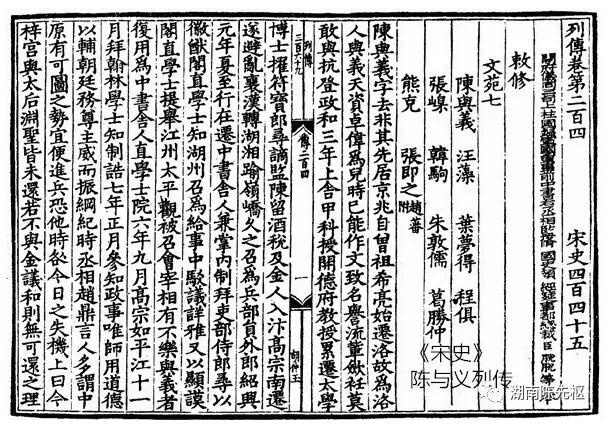 列傳卷第二百四　宋史四百四十五
開府儀同三司上柱國錄軍國重事前中書右丞相監修國史領經筵事都總裁臣脫脫等
敕修
文苑七
陳與義　汪藻　葉夢得　程俱
張嵲　韓駒　朱敦儒　葛勝仲
熊克　張即之 趙蕃附
陳與義字去非其先居京兆自曾祖希亮始遷洛故為洛
人與義天資卓偉為兒時已能作文致名譽流輩斂衽莫
敢與抗登政和三年上舍甲科授開德府教授累遷太學
傳二百四　一
博士擢符寶郎尋謫監陳留酒稅及金人入汴高宗南遷
遂避亂襄漢轉湖湘踰嶺嶠久之召為兵部員外郎紹興
元年夏至行在遷中書舍人兼掌內制拜吏部侍郎尋以
徽猷閣直學士知湖州召為給事中駁議詳雅又以顯謨
閣直學士提舉江州太平觀被召會宰相有不樂與義者
復用為中書舍人直學士院六年九月高宗如平江十一
月拜翰林學士知制誥七年正月參知政事唯師用道德
以輔朝廷務尊主威而振綱紀時丞相趙鼎言人多謂中
原有可圖之勢宜便進兵恐他時咎今日之失機上曰今
梓宮與太后淵聖皆未還若不與金議和則無可還之理
《宋史》
陈与义列传
湖南陈先枢